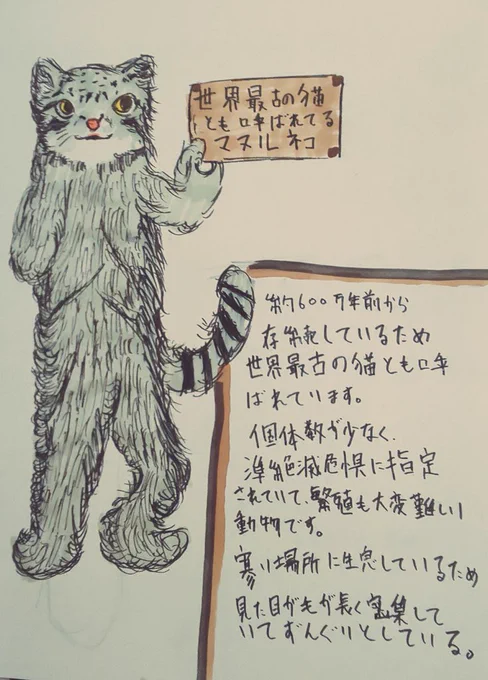 世界最古の猫
とも呼ばれてる
マヌルネコ
約600万年前から
存続しているため
世界最古の猫とも呼
ばれています。
個体数が少なく、
準絶滅危惧に指定
されていて、繁殖も大変難しい
動物です。
寒い場所に生息しているため
見た目が毛が長く密集して
いてずんぐりとしている。